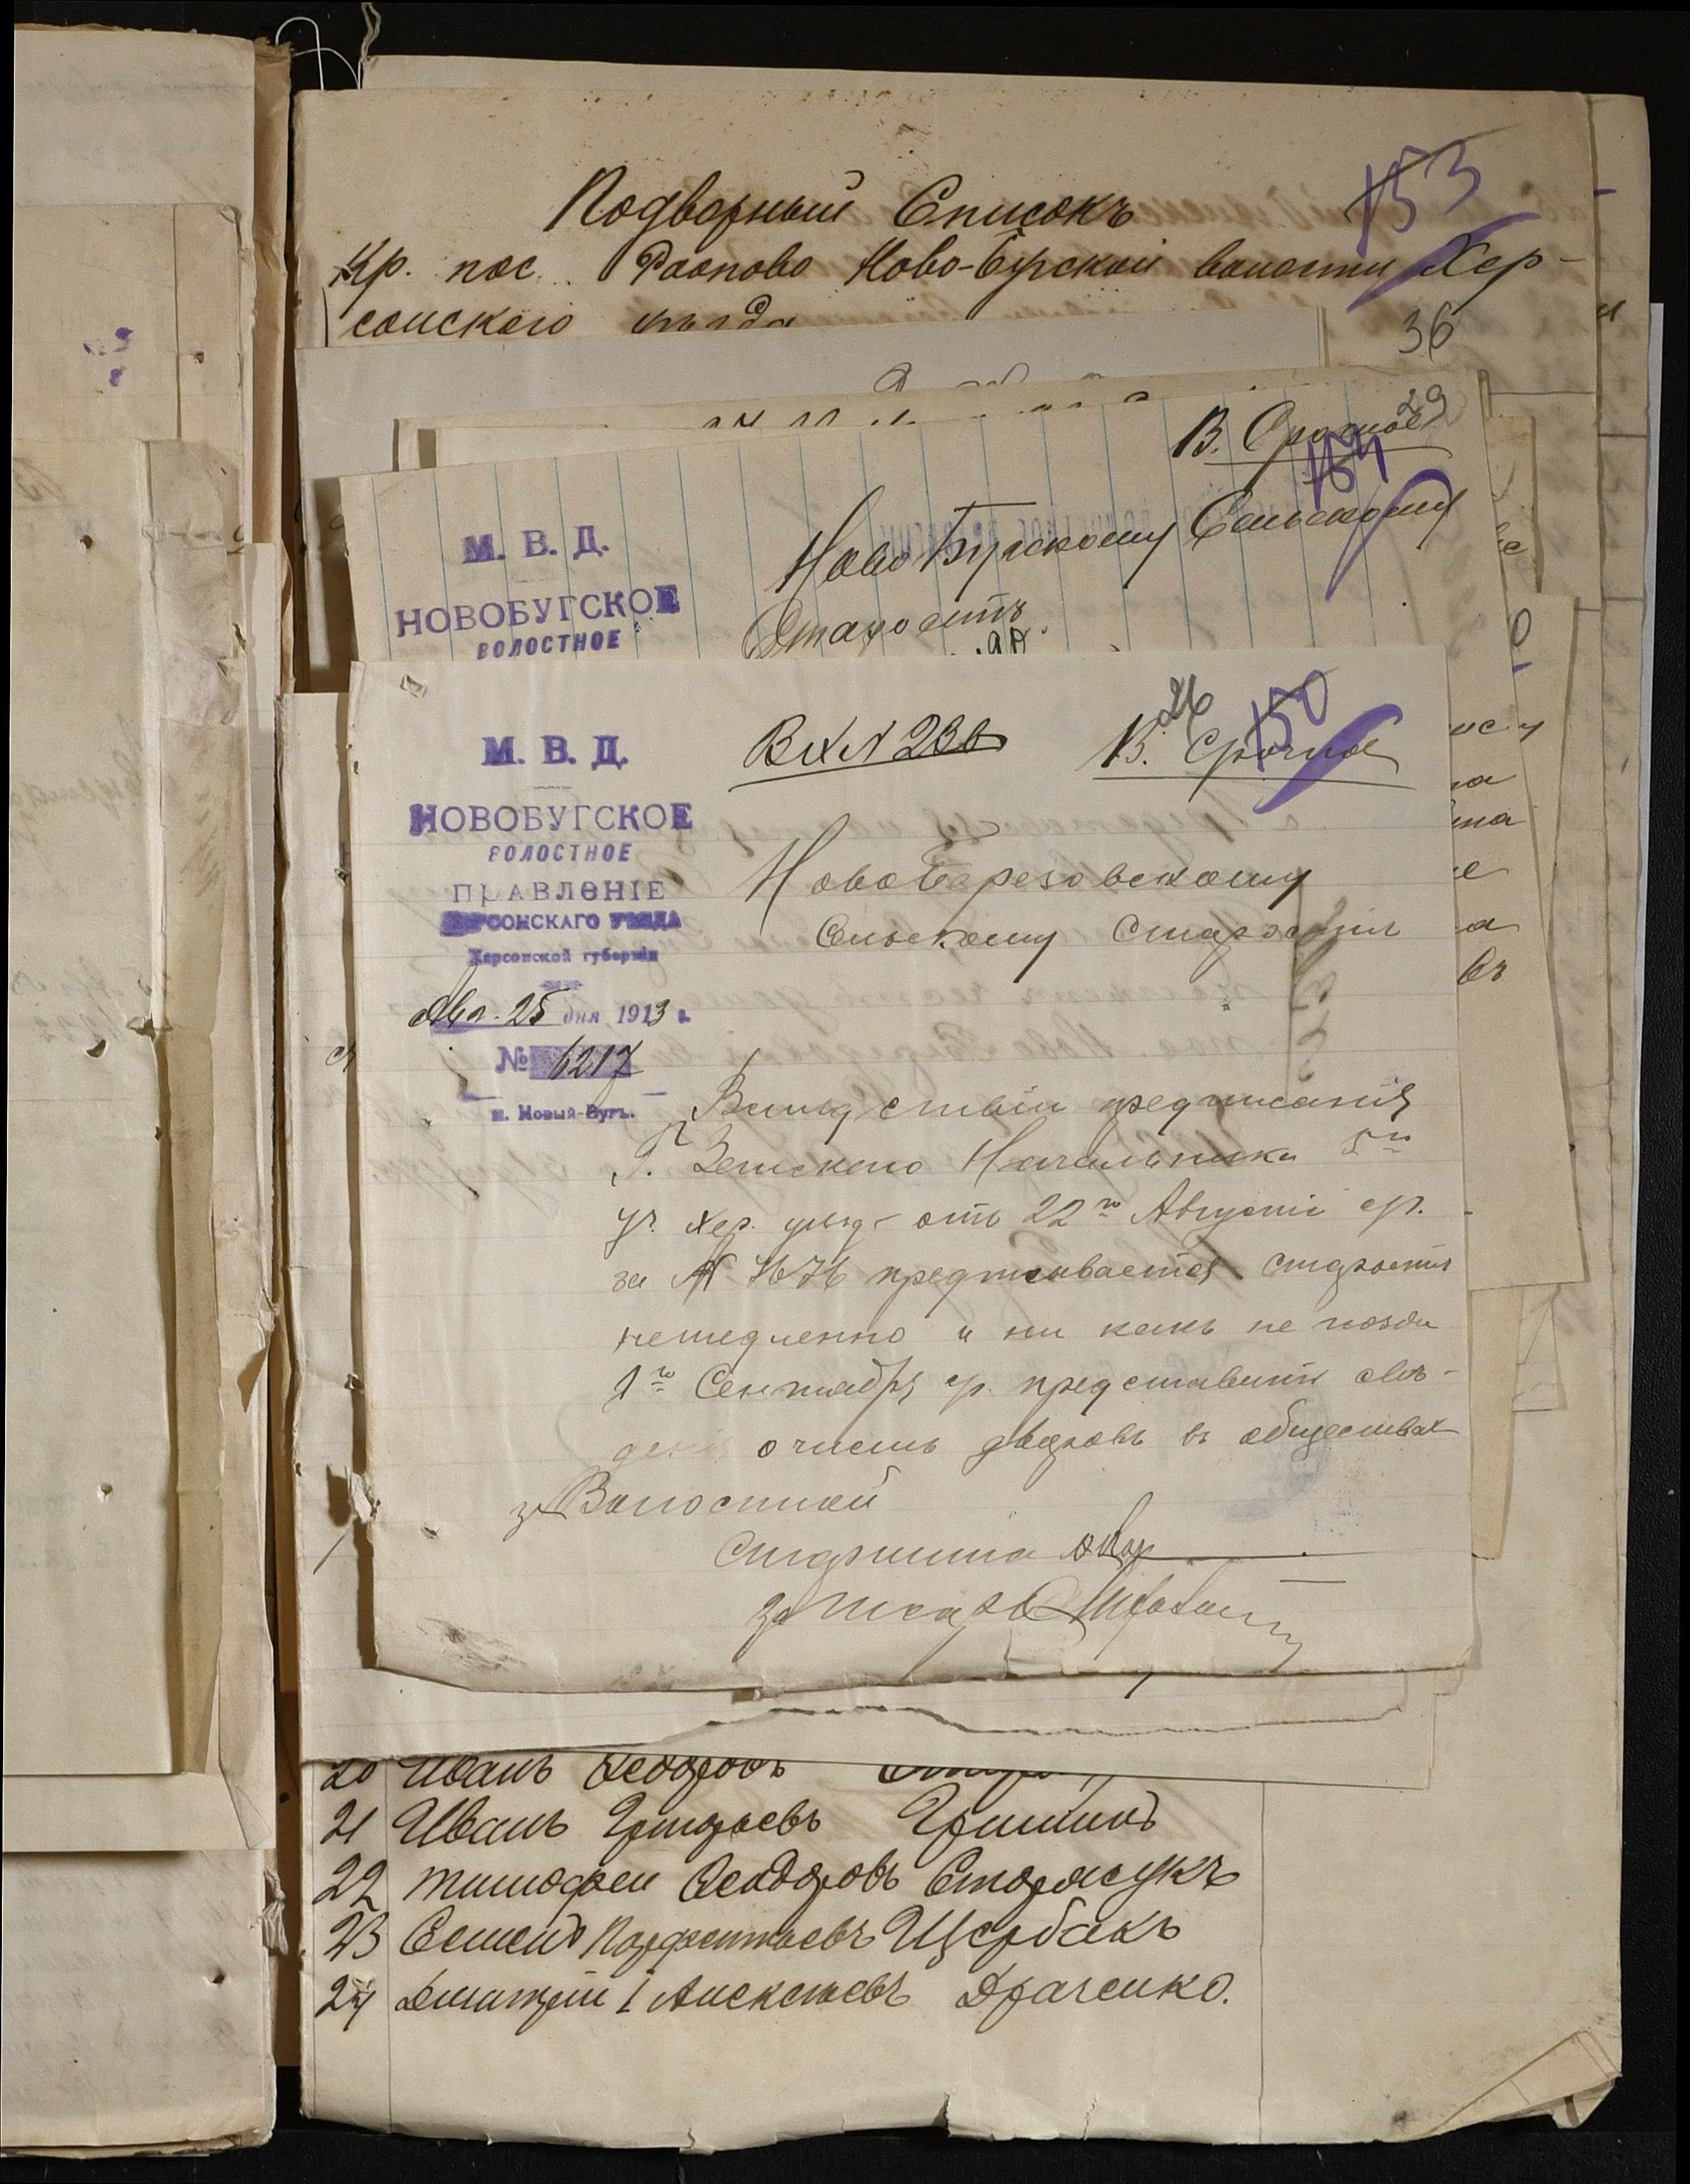 Подворный Списокъ
Кр. пос. Ново-Бугской волости Хер-
сонскаго уѣзда
153
36
В. Срочное
29
154
М. В. Д.
НОВОБУГСКОЕ
ВОЛОСТНОЕ
Ново Бугскому Сельскому
Старостѣ
М. В. Д.
НОВОБУГСКОЕ
ВОЛОСТНОЕ
ПРАВЛЕНІЕ
ХЕРСОНСКАГО УѢЗДА
Херсонской губерніи
Авг. 25 дня 1913 г.
№ 6217
м. Новый-Бугъ.
Вх №
26
150
В. Срочное
НовоБерезовскому
Сельскому Старостѣ
Вслѣдствіи предписанія
Г. Земскаго Начальника 5го
уч. Хер. уѣзд. отъ 22го Августа с/г.
за № 7676 предписывается старостѣ
немедленно и ни какъ не позди
1го Сентября с/г. представить свѣ-
ден о числѣ дворовъ въ обществах
за Волостной
Старшина
за Писарь
20 Иванъ Ѳеодоровъ
21 Иванъ Григорьевъ Гришинъ
22 Тимофеи Ѳеодоровъ Сторчукъ
23 Семенъ Парфентьевъ Щербакъ
24 Дмитрій 1 Алексѣевъ Драченко.